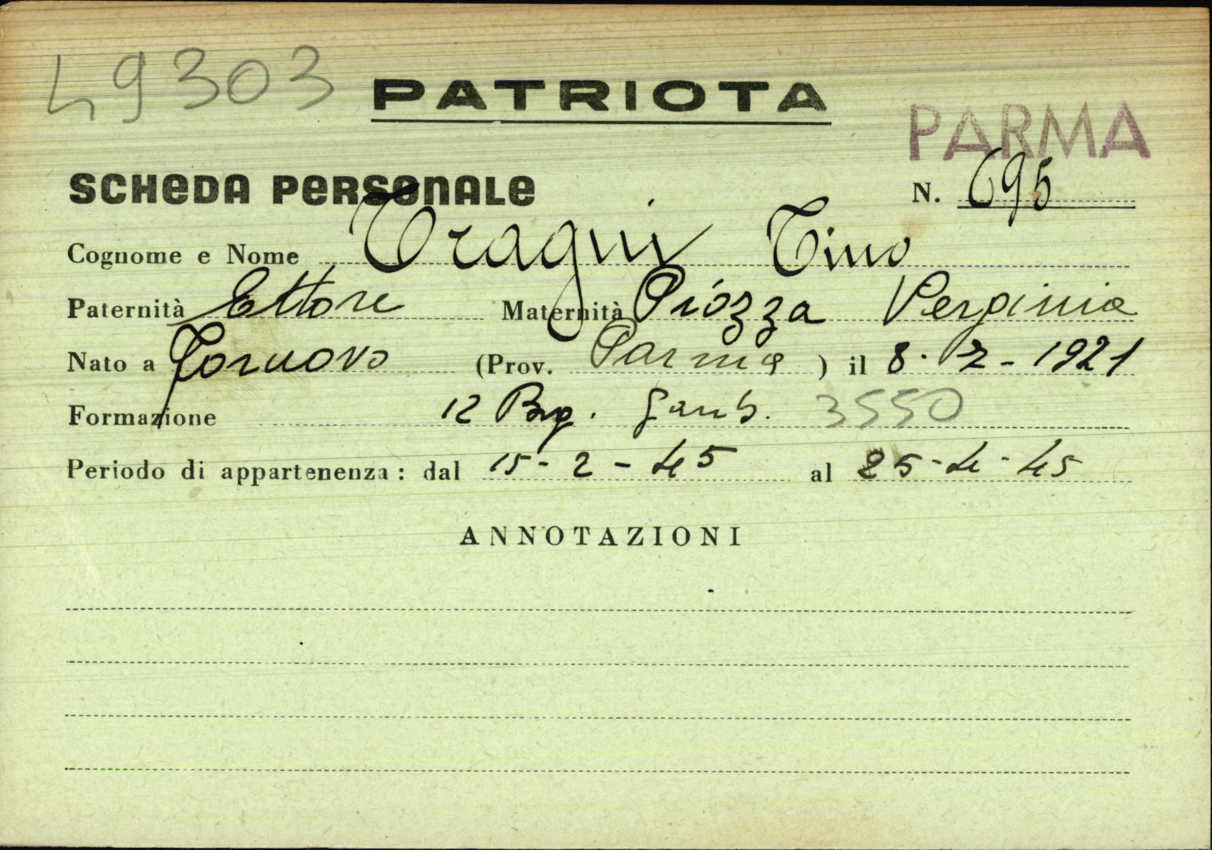 49303
PATRIOTA
PARMA
SCHEDA PERSONALE N. 695
Cognome e Nome Tragni Tino
Paternità Ettore Maternità Piozza Verginia
Nato a Fornovo (Prov. Parma) il 8-12-1921
Formazione 12 Brg. Garib. 3550
Periodo di appartenenza: dal 15-2-45 al 25-4-45
ANNOTAZIONI